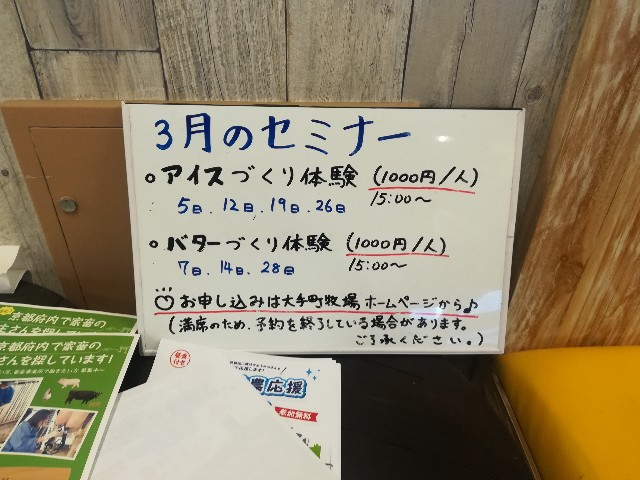 3月のセミナー
○アイスづくり体験 (1000円/人)
5日、12日、19日、26日 15:00〜
○バターづくり体験 (1000円/人)
7日、14日、28日 15:00〜
お申し込みは大手町牧場ホームページから♪
(満席のため、予約を終了している場合があります。
ご了承ください。)
京都府内で家畜の
京都府内で家畜の
さんを探しています!
昼食付き
農応援
参加無料